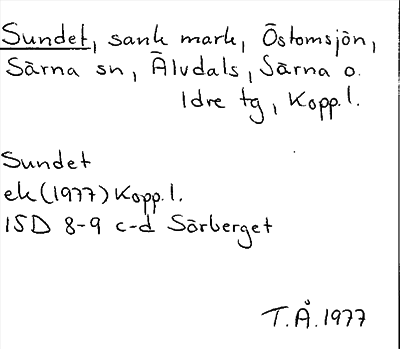 Sundet, sank mark, Östomsjön,
Särna sn, Älvdals, Särna o.
Idre tg, Kopp.l.
Sundet
ek (1977) Kopp.l.
ISD 8-9 c-d Sörberget
T.Å. 1977